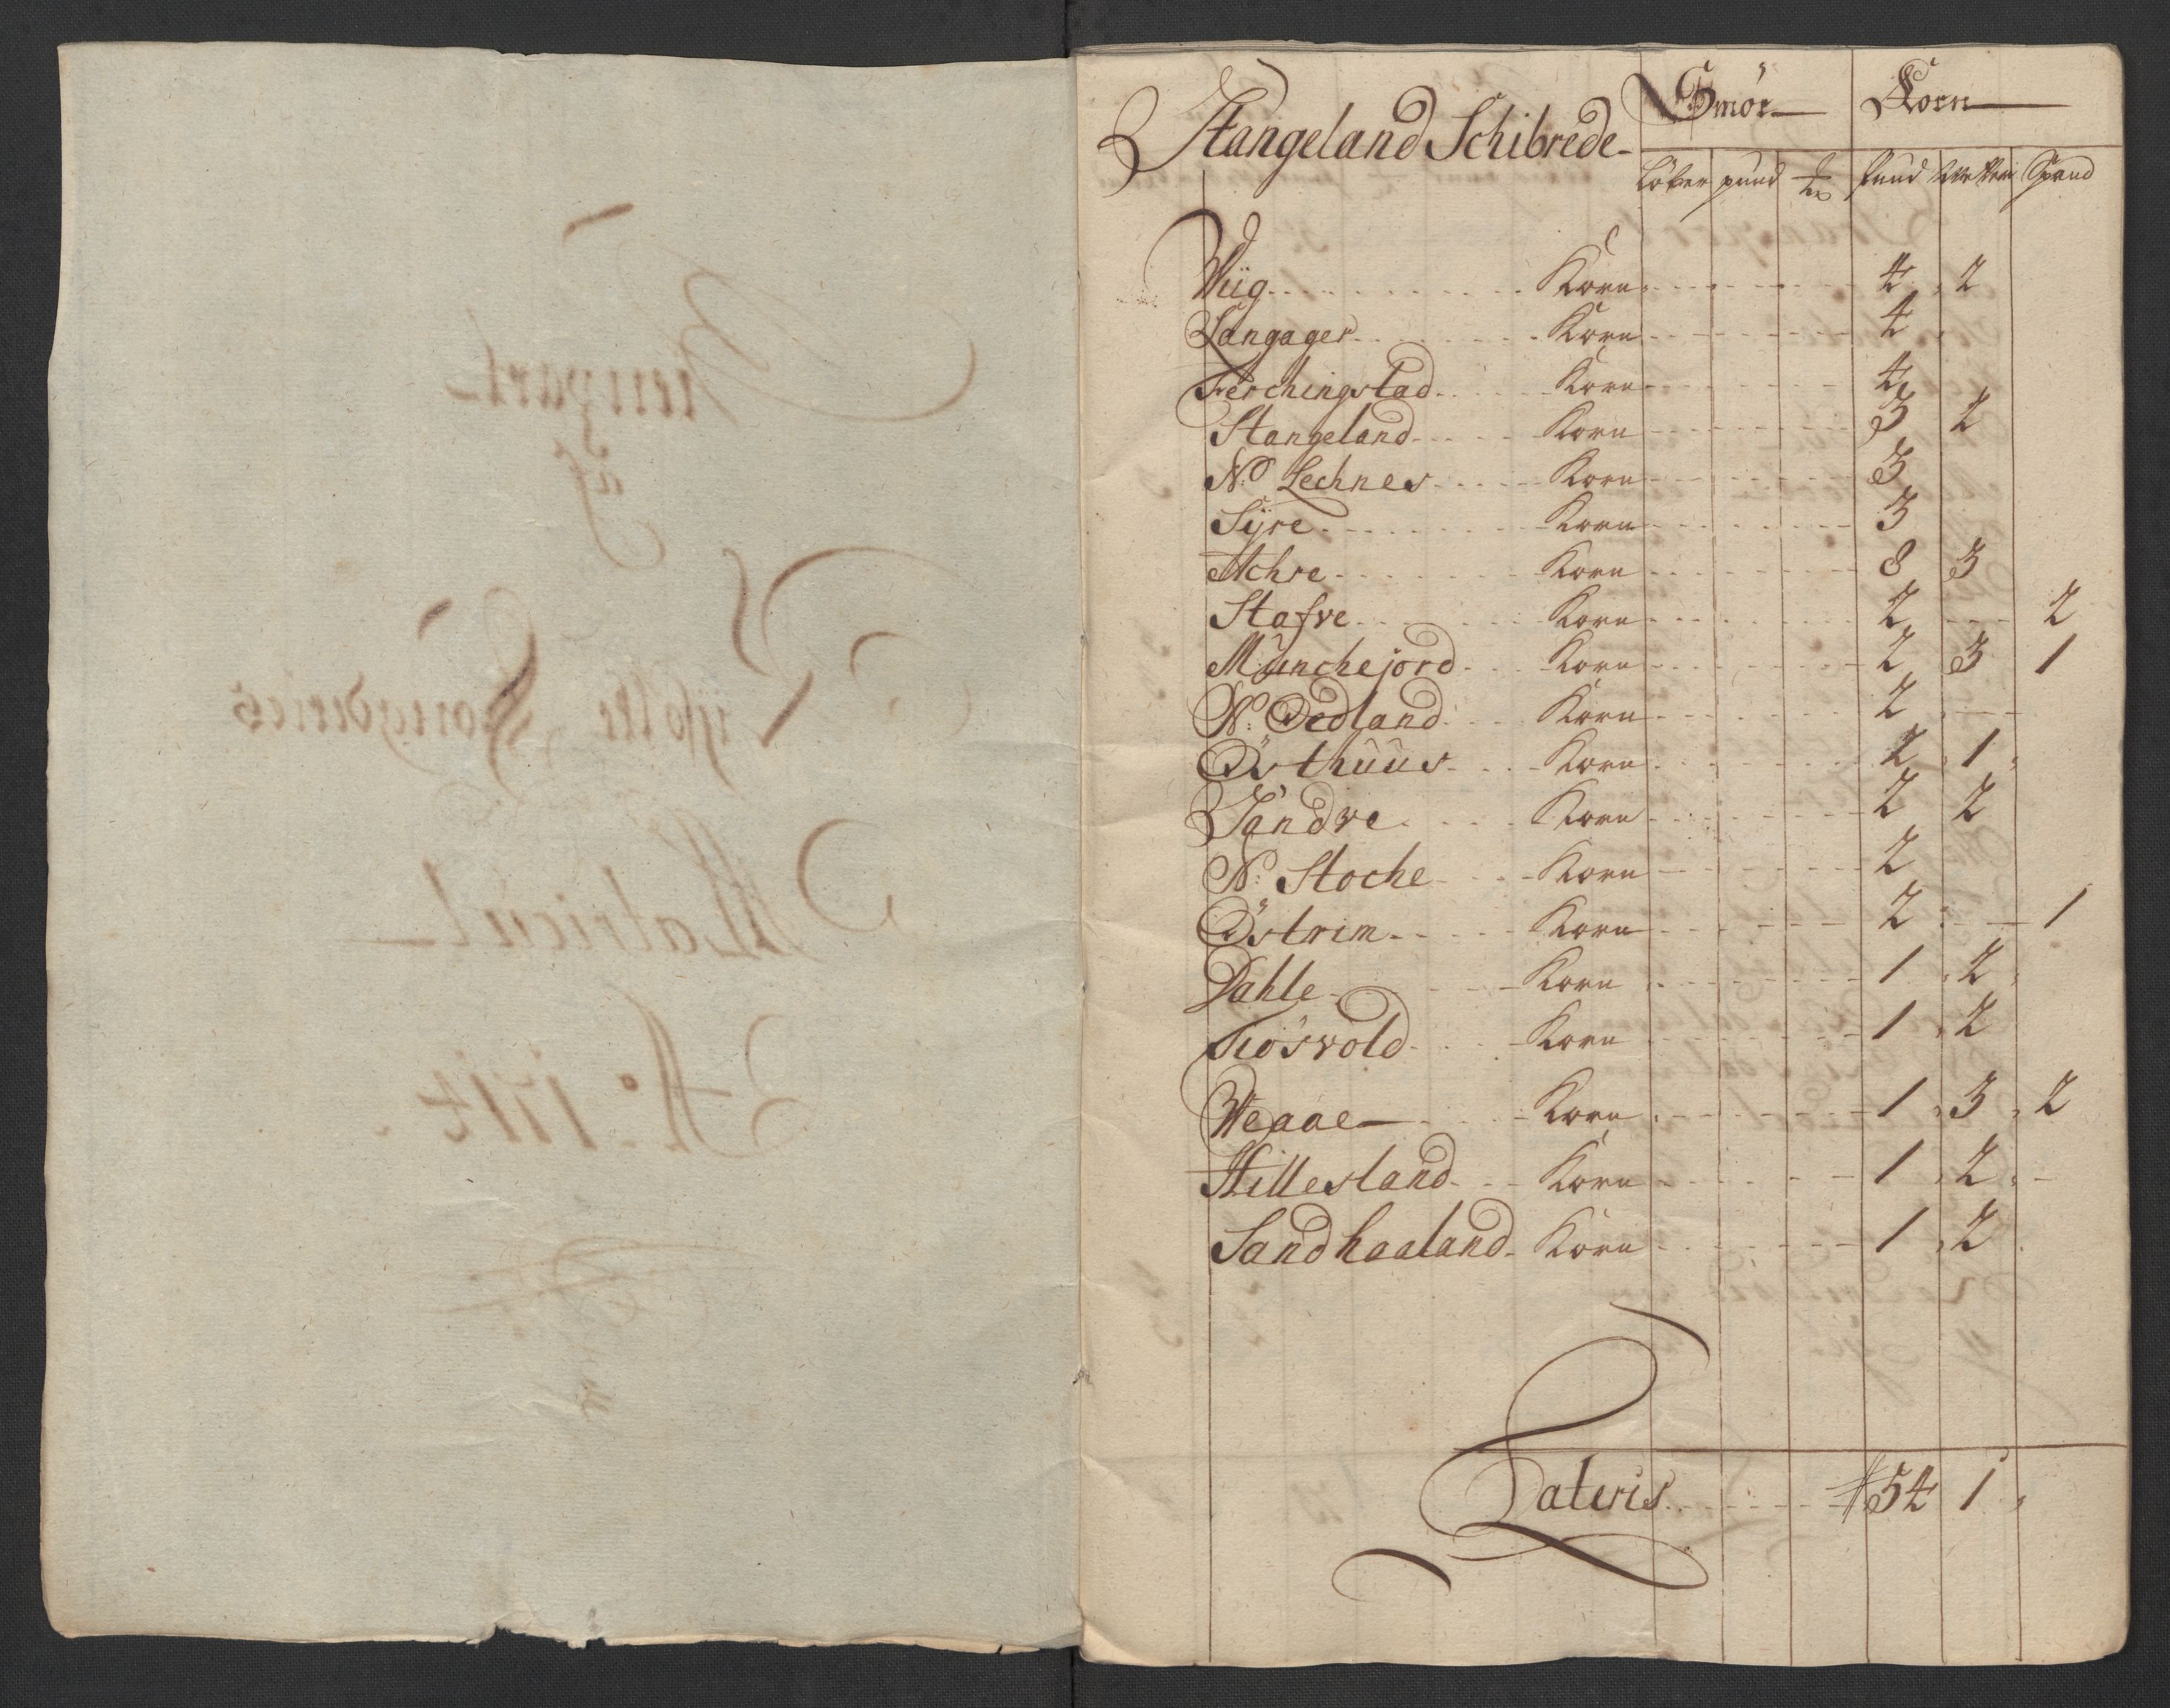 Stangeland Schibrede Smör Korn
Löber pund ℔ pund Spand
Wiig Korn 4 2
Langager Korn 4
Ferchingstad Korn 4
Stangeland Korn 3 2
N: Lechnes Korn 3
Sÿre Korn 3
Achre Korn 8 3
Stafve Korn 2 2
Munchejord Korn 2 3 1
N: Oedland Korn 2
Östhuus Korn 2 1
Sandve Korn 2 2
N: Stoche Korn 2
Östrim Korn 2 1
Dahle Korn 1 2
Tiösvold Korn 1 2
Weaae Korn 1 3 2
Hillesland Korn 1 2
Sandhaaland Korn 1 2
Lateris 54 1